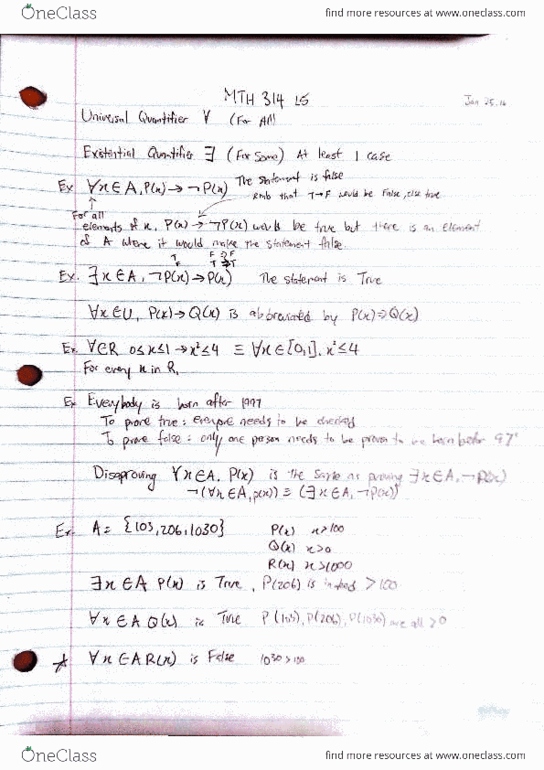 OneClass
find more resources at www.oneclass.com
MTH 314 L5
Jan 25.16
Universal Quantifier ∀ (For All)
Existential Quantifier ∃ (For Some) At least 1 case
Ex ∀x∈A, P(x) → ¬P(x) The statement is false
Rmb that T→F would be False, else true
For all
elements of x, P(x) → ¬P(x) would be true but there is an element
of A where it would make the statement false.
F F
T T
Ex. ∃x∈A, ¬P(x) → P(x) The statement is True
∀x∈U, P(x) → Q(x) is abbreviated by P(x) ⇒ Q(x)
Ex. ∀∈R 0≤x≤1 → x²≤4 ≡ ∀x∈[0,1], x²≤4
For every x in R,
Ex Everybody is born after 1997
To prove true: everyone needs to be checked
To prove false: only one person needs to be proven to be born before 97'
Disproving ∀x∈A, P(x) is the same as proving ∃x∈A, ¬P(x)
¬(∀x∈A, p(x)) ≡ (∃x∈A, ¬P(x))
Ex. A = {103, 206, 1030} P(x) x>100
Q(x) x>0
R(x) x>1000
∃x∈A P(x) is True, P(206) is indeed >100
∀x∈A Q(x) is True P(103), P(206), P(1030) are all >0
∀x∈A R(x) is False 1030>100
OneClass
find more resources at www.oneclass.com